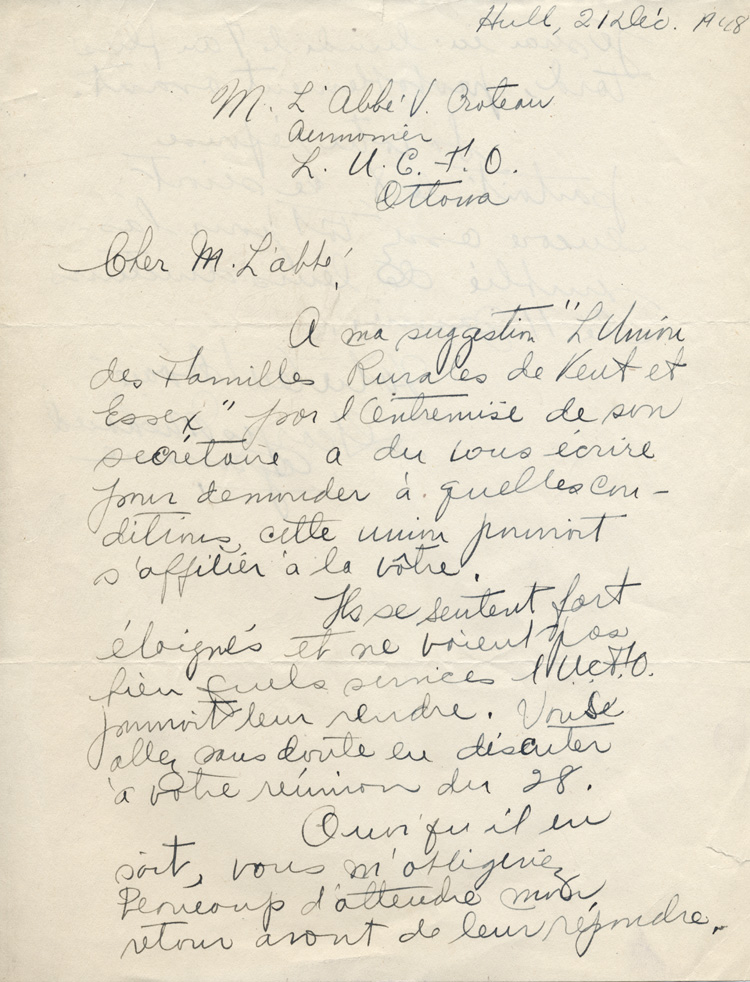 Hull, 21 Déc. 1948
M. L'Abbé V. Croteau
Aumonier
L. U. C. F. O.
Ottawa
Cher M. L'abbé!
A ma suggestion "L'Union
des Familles Rurales de Kent et
Essex" par l'entremise de son
secrétaire a du vous écrire
pour demander à quelles con-
ditions cette union pourrait
s'affilier à la vôtre.
Ils se sentent fort
éloignés et ne voient pas
bien quels services l'U.C.F.O.
pourrait leur rendre. Vous
allez sans doute en discuter
à votre réunion du 28.
Quoi qu'il en
soit, vous m'obligeriez
Beaucoup d'attendre mon
retour avant de leur répondre.